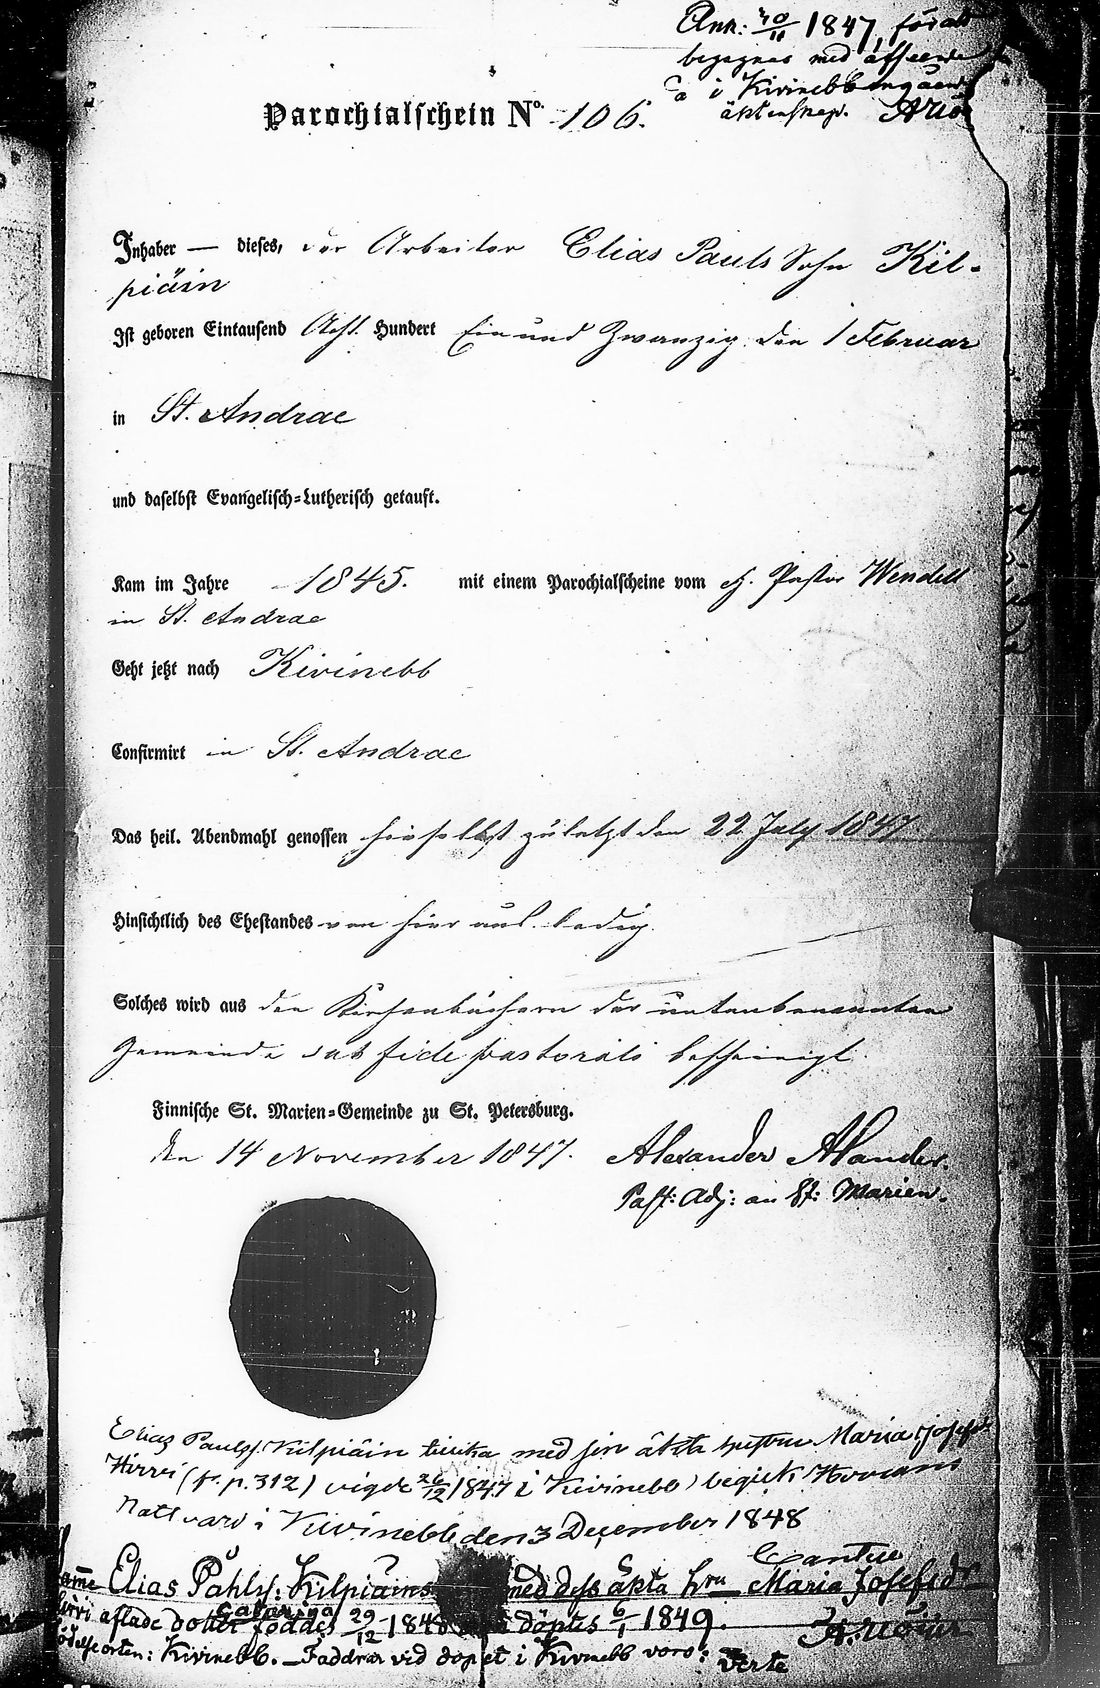 Ank: 20/11 1847, för att
begagnas med afseende
å i Kivinebb ingående
äktenskap. Ario
Parochialschein No. 106.
Inhaber — dieses, der Arbeiter Elias Pauls Sohn Kil-
piäin
Ist geboren Eintausend Acht Hundert Ein und Zwanzig den 1 Februar
in St. Andrae
und daselbst Evangelisch-Lutherisch getauft.
Kam im Jahre 1845. mit einem Parochialscheine vom H. Pastor Wendell
in St. Andrae
Geht jetzt nach Kivinebb
Confirmirt in St. Andrae
Das heil. Abendmahl genossen hieselbst zuletzt den 22 July 1847
Hinsichtlich des Ehestandes von hier aus ledig.
Solches wird aus den Kirchenbüchern der untenbenannten
Gemeinde sub fide pastorali bescheinigt.
Finnische St. Marien-Gemeinde zu St. Petersburg.
den 14 November 1847. Alexander Alander.
Past: Adj: an St: Marien.
Elias Paulss. Kilpiäin med sin äkta hustru Maria Josefsdr
Hirvi (f. p. 312) vigde 26/12 1847 i Kivinebb) begick Herrans
Nattvard i Kivinebb den 3 December 1848
Elias Påhlss: Kilpiäins med dess äkta hru Maria Josefsdr
Hirvi aflade dotter Catarina föddes 29/12 1848 döptes 6/1 1849.
Födelseorten: Kivinebb. — Faddrar vid dopet i Kivinebb voro: Verte